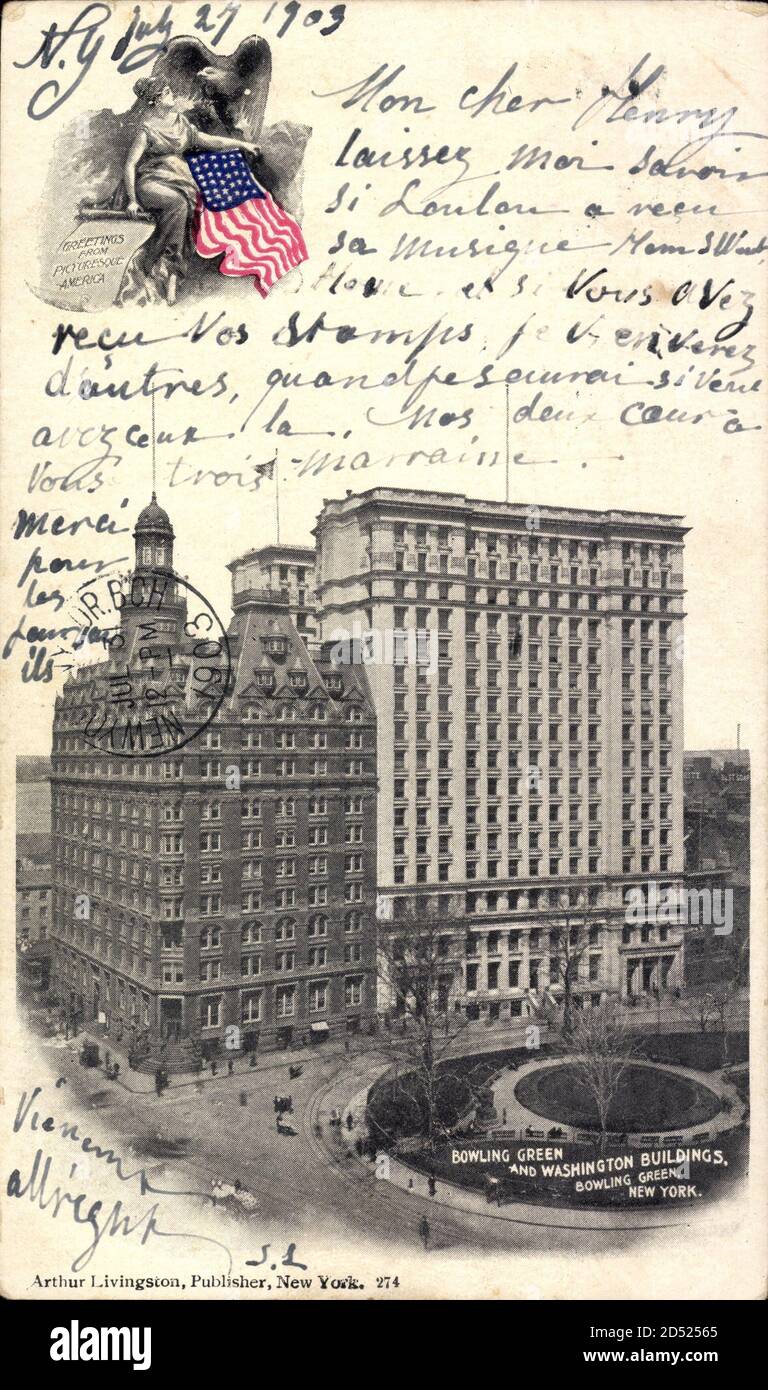 N.Y July 27 1903
Mon cher Henry
laissez moi savoir
si Loulou a reçu
sa musique Home Sweet
Home et si vous avez
reçu vos stamps, je v. enverez
d'autres, quand je saurai si vous
avez ceux la. Nos deux cœur a
vous trois - Marraine.
Merci
pour
les
journau
ils
GREETINGS
FROM
PICTURESQUE
AMERICA
NEW YORK
JUL 31
12-PM
1903
Viennent
allright
S.L
BOWLING GREEN
AND WASHINGTON BUILDINGS,
BOWLING GREEN,
NEW YORK.
Arthur Livingston, Publisher, New York. 274
alamy
Image ID: 2D52565
www.alamy.com